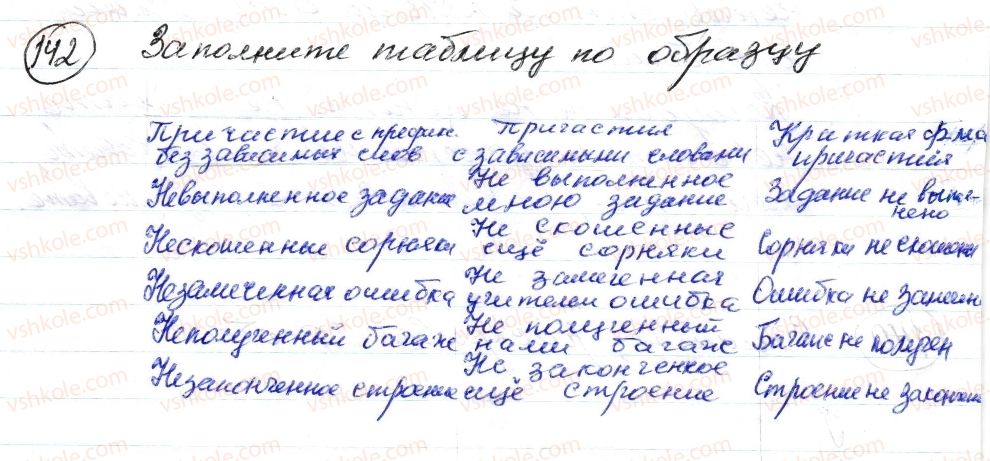 142 Заполните таблицу по образцу
Причастие с префик. Причастия Краткая форма
без зависимых слов с зависимыми словами причастия
Невыполненное задание Не выполненное мною задание Задание не выполнено
Нескошенные сорняки Не скошенные ещё сорняки Сорняки не скошены
Незамеченная ошибка Не замеченная учителем ошибка Ошибка не замечена
Неполученный багаж Не полученный нами багаж Багаж не получен
Незаконченное строение Не законченное ещё строение Строение не закончено
vshkole.com